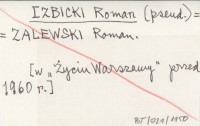 IZBICKI Roman (pseud.) =
= ZALEWSKI Roman.
[w „Życiu Warszawy" przed
1960 r.]
BT/021/1150